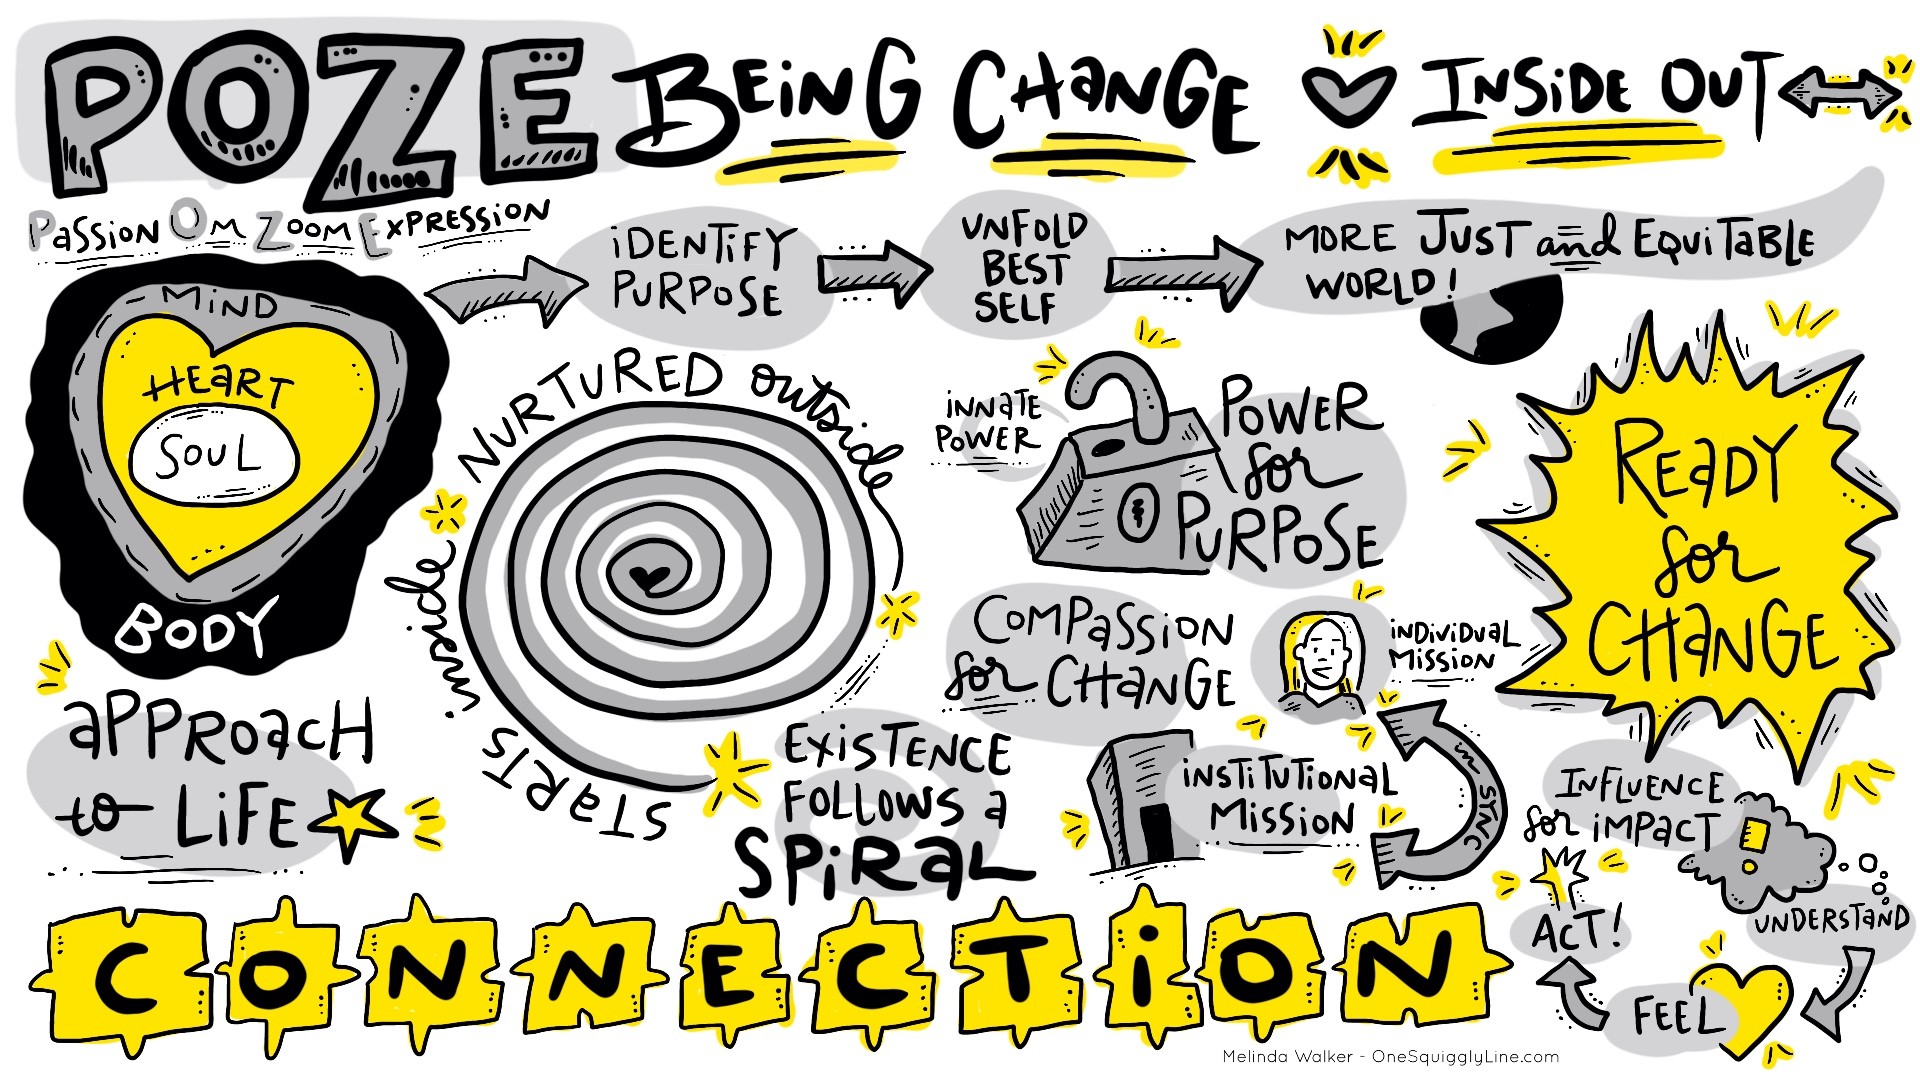 POZE BEiNG CHaNGE INSiDE OUT
PaSSiON OM ZOOM EXPRESSiON
iDENTiFY
PURPOSE
UNFOLD
BEST
SELF
MORE JUST and EQUiTaBLE
WORLD!
MiND
HEaRT
SOUL
BODY
aPPROacH
to LiFE
STaRTS inside
NURTURED outside
EXiSTENCE
FOLLOWS a
SPiRaL
iNNaTE
POWER
POWER
for
PURPOSE
COMPaSSiON
for CHaNGE
iNDiViDUaL
MiSSiON
iNSTiTUTiONaL
MiSSiON
in SYNC
READY
for
CHaNGE
INFLUENCE
for iMPacT
UNDERSTaND
FEEL
AcT!
CONNECTiON
Melinda Walker - OneSquigglyLine.com